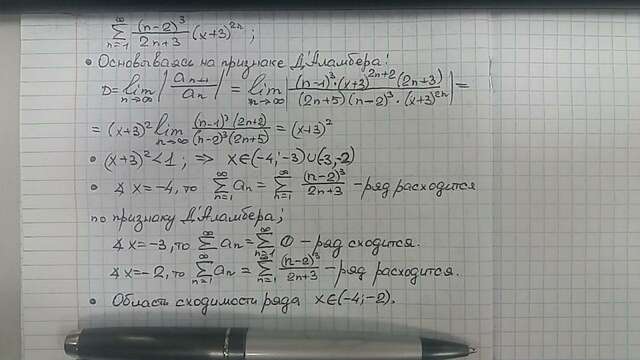 ∑_{n=1}^{∞} (n-2)³/(2n+3) (x+3)^{2n};
• Основываясь на признаке Д'Аламбера:
D = lim_{n→∞} |a_{n+1}/a_n| = lim_{n→∞} |(n-1)³·(x+3)^{2n+2}(2n+3)/((2n+5)(n-2)³·(x+3)^{2n})| =
= (x+3)² lim_{n→∞} (n-1)³(2n+2)/((n-2)³(2n+5)) = (x+3)²
• (x+3)² < 1; ⇒ x∈(-4;-3)∪(-3,-2)
• ∢ x=-4, то ∑_{n=1}^{∞} a_n = ∑_{n=1}^{∞} (n-2)³/(2n+3) - ряд расходится
по признаку Д'Аламбера;
∢ x=-3, то ∑_{n=1}^{∞} a_n = ∑_{n=1}^{∞} 0 - ряд сходится.
∢ x=-2, то ∑_{n=1}^{∞} a_n = ∑_{n=1}^{∞} (n-2)³/(2n+3) - ряд расходится.
• Область сходимости ряда x∈(-4;-2).